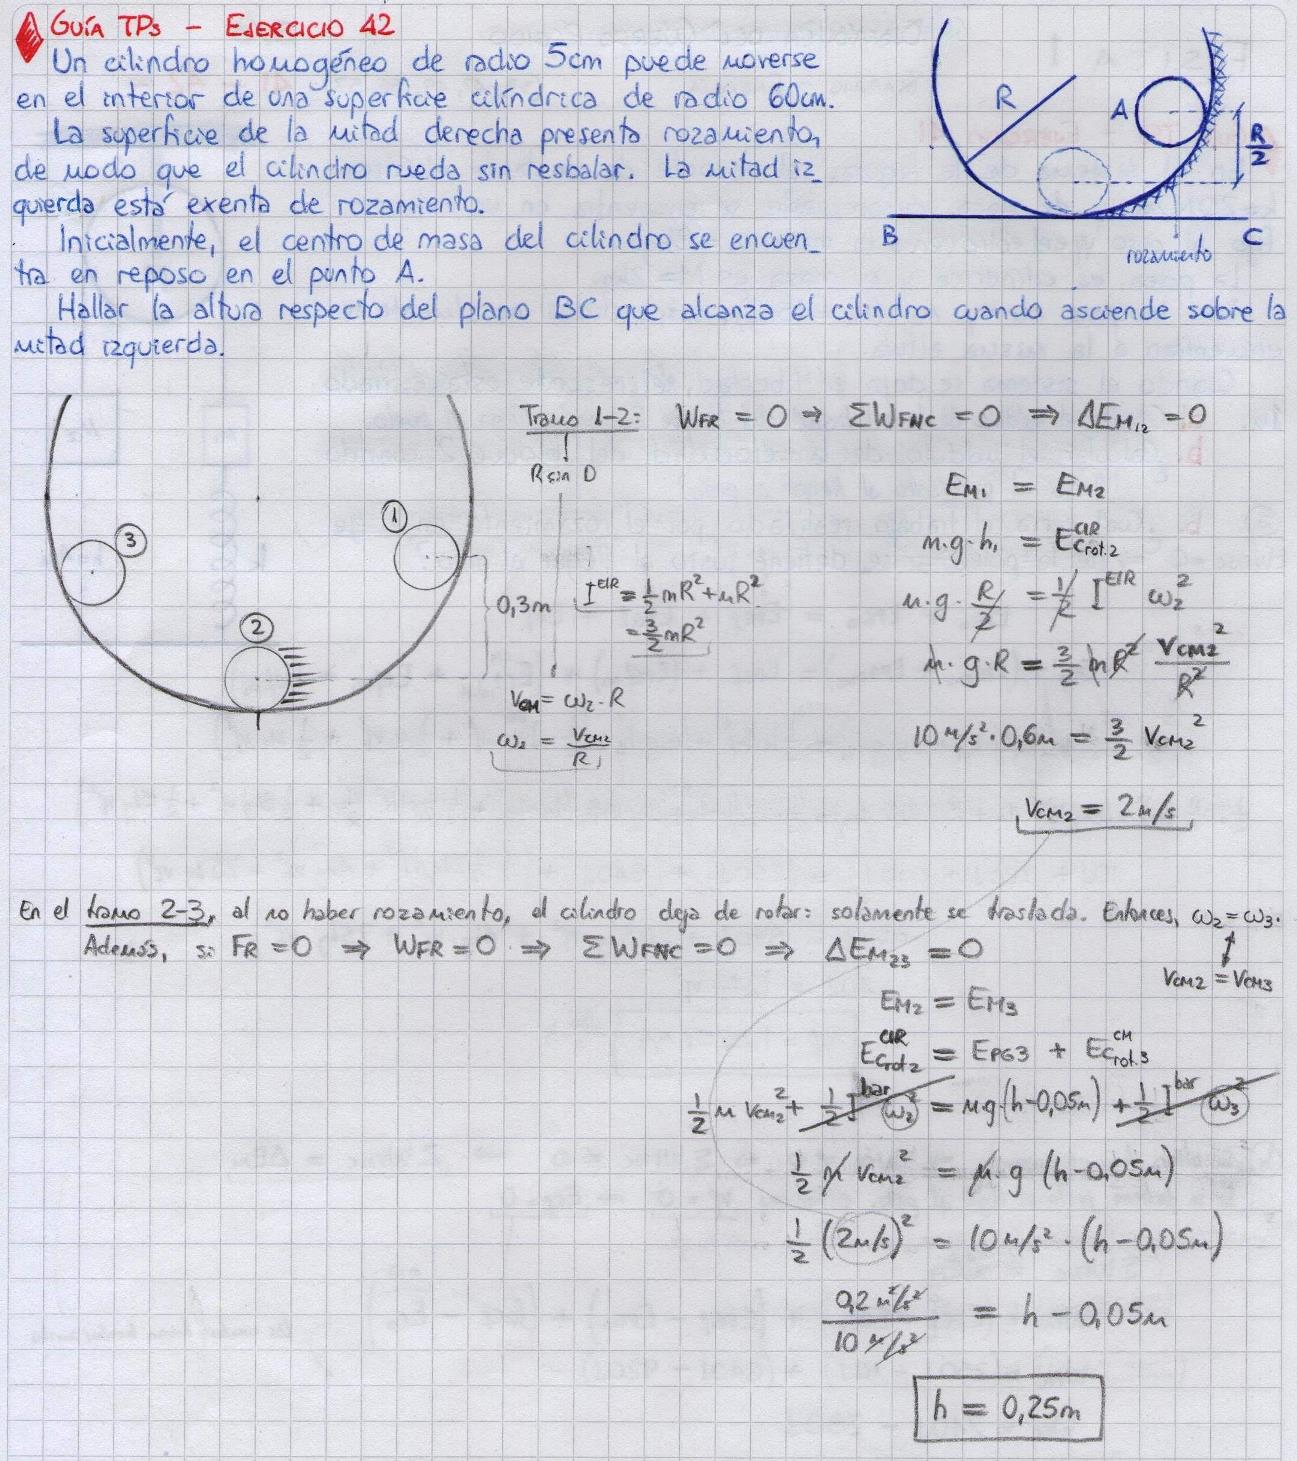 GUÍA TPs – EJERCICIO 42
Un cilindro homogéneo de radio 5cm puede moverse
en el interior de una superficie cilíndrica de radio 60cm.
La superficie de la mitad derecha presenta rozamiento,
de modo que el cilindro rueda sin resbalar. La mitad iz_
quierda está exenta de rozamiento.
Inicialmente, el centro de masa del cilindro se encuen_
tra en reposo en el punto A.
Hallar la altura respecto del plano BC que alcanza el cilindro cuando asciende sobre la
mitad izquierda.
R
A
R/2
B
C
rozamiento
1
2
3
0,3m
Tramo 1-2: WFR = 0 ⇒ ΣWFNC = 0 ⇒ ΔEM12 = 0
R sin D
EM1 = EM2
m.g.h1 = Ecrot.2^CIR
I^EIR = 1/2 mR² + mR²
= 3/2 mR²
m.g.R/2 = 1/2 I^EIR ω2²
m.g.R = 3/2 mR² VCM2²/R²
VCM = ω2.R
ω2 = VCM2/R
10 m/s².0,6m = 3/2 VCM2²
VCM2 = 2m/s
En el tramo 2-3, al no haber rozamiento, el cilindro deja de rotar: solamente se traslada. Entonces, ω2 = ω3.
Además, si FR = 0 ⇒ WFR = 0 ⇒ ΣWFNC = 0 ⇒ ΔEM23 = 0
VCM2 = VCM3
EM2 = EM3
Ecrot2^CIR = EPG3 + Ecrot.3^CM
1/2 m VCM2² + 1/2 I^bar ω2² = mg.(h-0,05m) + 1/2 I^bar ω3²
1/2 m VCM2² = m.g (h-0,05m)
1/2 (2m/s)² = 10 m/s².(h-0,05m)
0,2 m²/s² / 10 m/s² = h - 0,05m
h = 0,25m